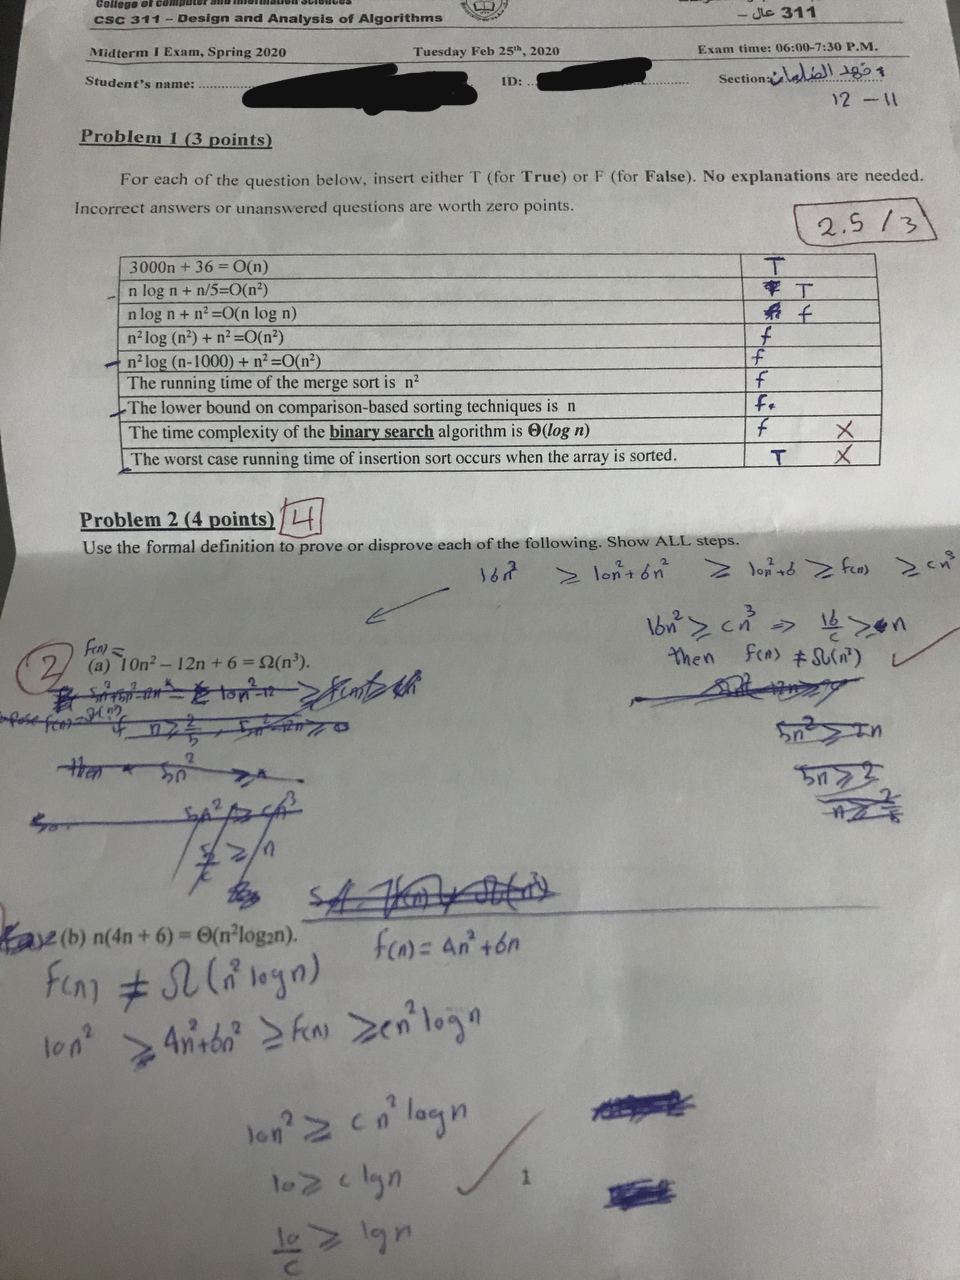 College of Computer and Information Sciences
CSC 311 – Design and Analysis of Algorithms
311 عال –
Midterm I Exam, Spring 2020 Tuesday Feb 25th, 2020 Exam time: 06:00-7:30 P.M.
Student's name: ID: Section:
12 - 11
Problem 1 (3 points)
For each of the question below, insert either T (for True) or F (for False). No explanations are needed.
Incorrect answers or unanswered questions are worth zero points.
2.5 / 3
3000n + 36 = O(n) T
n log n + n/5=O(n²) T
n log n + n² =O(n log n) f
n² log (n²) + n² =O(n²) f
n² log (n-1000) + n² =O(n²) f
The running time of the merge sort is n² f
The lower bound on comparison-based sorting techniques is n f.
The time complexity of the binary search algorithm is Θ(log n) f X
The worst case running time of insertion sort occurs when the array is sorted. T X
Problem 2 (4 points) 4
Use the formal definition to prove or disprove each of the following. Show ALL steps.
16n² ≥ 10n²+6n² ≥ 10n²+6 ≥ f(n) ≥ cn³
16n² ≥ cn³ ⇒ 16/c ≥ n
then f(n) ≠ Ω(n³)
2
f(n) =
(a) 10n² – 12n + 6 = Ω(n³).
5n² ≥ 2n
5n ≥ 2
n ≥ 2/5
then 5n²
5n² ≥ cn³
5/c ≥ n
(b) n(4n + 6) = Θ(n²log₂n).
f(n) = 4n² + 6n
f(n) ≠ Ω(n² logn)
10n² ≥ 4n²+6n² ≥ f(n) ≥ cn² logn
10n² ≥ cn² logn
10 ≥ c lgn
1
10/c ≥ lgn